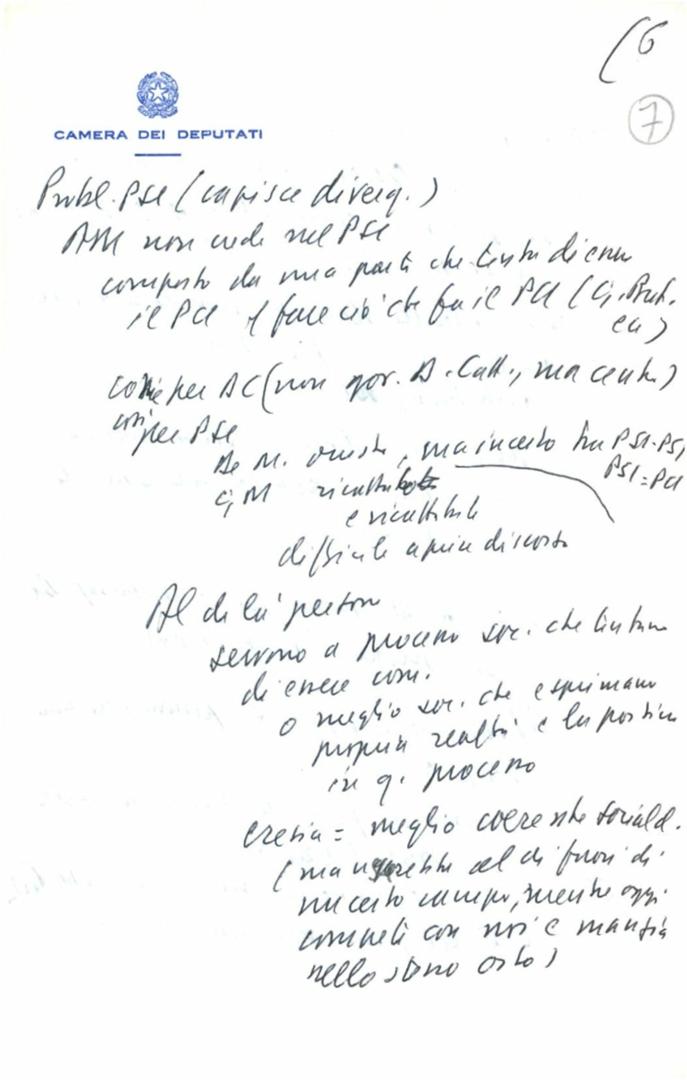 (6
7
CAMERA DEI DEPUTATI
Probl. PSI (capisce diverg.)
AM non crede nel PSI
composto da una parte che tenta di essere
il PCI e fare ciò che fa il PCI (
ca)
come per DC (non gov. D. Catt., ma centr.)
così per PSI
De M. onesto, ma incerto tra PSI-PSI
PSI=PCI
G, M ricattabile
e ricattabile
difficile aprire discorso
Al di là persone
servono a processo soc. che tentano
di essere com.
o meglio soc. che esprimano
propria realtà e la portino
in q. processo
eresia = meglio coerente sociald.
(ma sarebbe al di fuori di
un certo campo, mentre oggi
compete con noi e mangia
nello stesso orto)